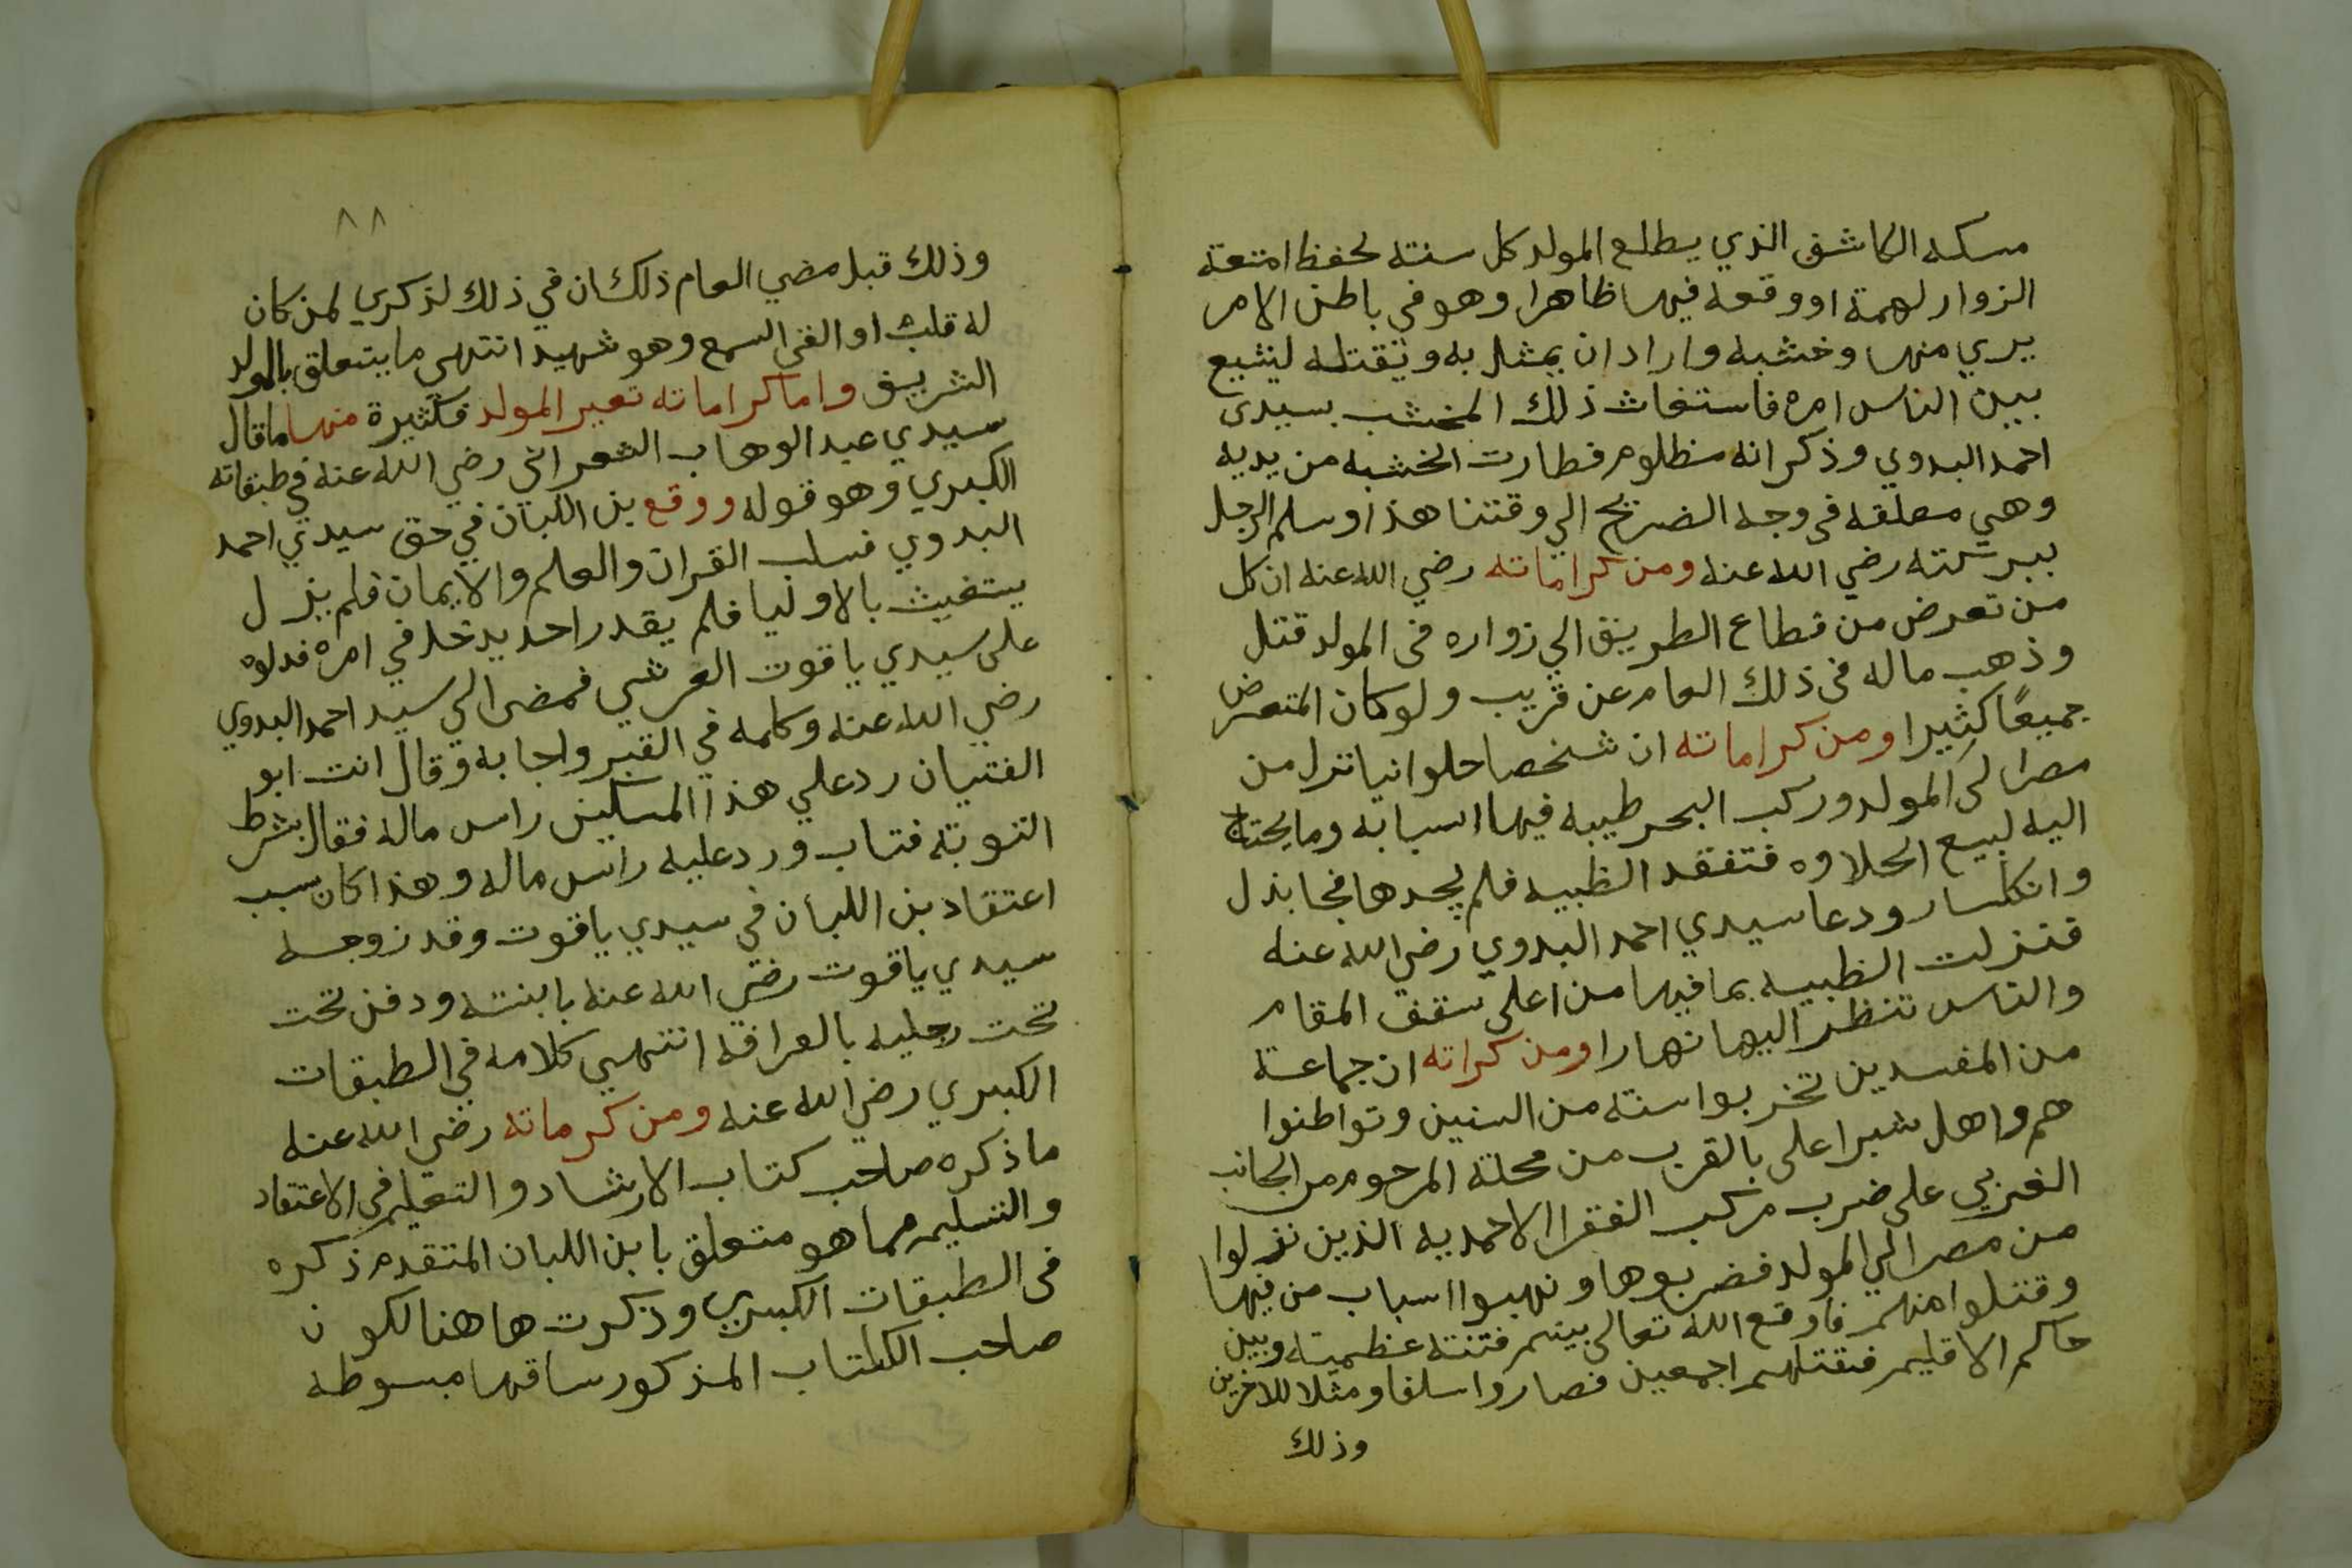 مسكه الكاشف الذي يطلع المولد كل سنة لحفظ امتعة
الزوار لهمة او وقعة فيها ظاهرا وهو في باطن الامر
بري منها وخشبه واراد ان يمثل به ويقتله ليشيع
بين الناس امره فاستغاث ذلك المخشب بسيدى
احمد البدوي وذكر انه مظلوم فطارت الخشبه من يديه
وهي معلقه في وجه الضريح الي وقتنا هذا وسلم الرجل
ببركته رضي الله عنه ومن كراماته رضي الله عنه ان كل
من تعرض من قطاع الطريق الي زواره في المولد قتل
وذهب ماله في ذلك العام عن قريب ولو كان المتعرض
جميعًا كثيرا ومن كراماته ان شخصا حلوانيا نزل من
مصر الى المولد وركب البحر طيبه فيها اسبابه وما يحتاج
اليه لبيع الحلاوه فتفقد الظبيه فلم يجدها فجا بذل
وانكسار ودعا سيدي احمد البدوي رضي الله عنه
فنزلت الظبيه بما فيها من اعلى سقف المقام
والناس تنظر اليها نهارا ومن كراته ان جماعة
من المفسدين تخربوا سنة من السنين وتواطنوا
هم واهل شبرا على بالقرب من محلة المرحوم من الجانب
الغربي على ضرب مركب الفقرا الاحمديه الذين نزلوا
من مصر الي المولد فضربوها ونهبوا اسباب من فيها
وقتلوا منهم فاوقع الله تعالى بينهم فتنة عظميته وبين
حاكم الاقليم فقتلهم اجمعين فصاروا سلفا ومثلا للاخرين
وذلك
٨٨
وذلك قبل مضي العام ذلك ان في ذلك لذكري لمن كان
له قلب او القى السمع وهو شهيد انتهي ما يتعلق بالمولد
الشريف واما كراماته تعير المولد فكثيرة منها ما قال
سيدي عبد الوهاب الشعراني رضي الله عنه في طبقاته
الكبري وهو قوله ووقع بن اللبان في حق سيدي احمد
البدوي فسلب القران والعلم والايمان فلم يزل
يستغيث بالاوليا فلم يقدر احد يدخل في امره فدلوه
على سيدي ياقوت العرشي فمضى الي سيد احمد البدوي
رضي الله عنه وكلمه في القبر واجابه وقال انت ابو
الفتيان رد علي هذا المسكين راس ماله فقال بشرط
التوبة فتاب ورد عليه راس ماله وهذا كان سبب
اعتقاد بن اللبان في سيدي ياقوت وقد زوجه
سيدي ياقوت رضي الله عنه بابنته ودفن تحت
تحت رجليه بالعرافة انتهي كلامه في الطبقات
الكبري رضي الله عنه ومن كرماته رضي الله عنه
ما ذكره صاحب كتاب الارشاد والتعليم في الاعتقاد
والتسليم مما هو متعلق بابن اللبان المتقدم ذكره
في الطبقات الكبري وذكرت ها هنا لكون
صاحب الكتاب المذكور ساقها مبسوطه